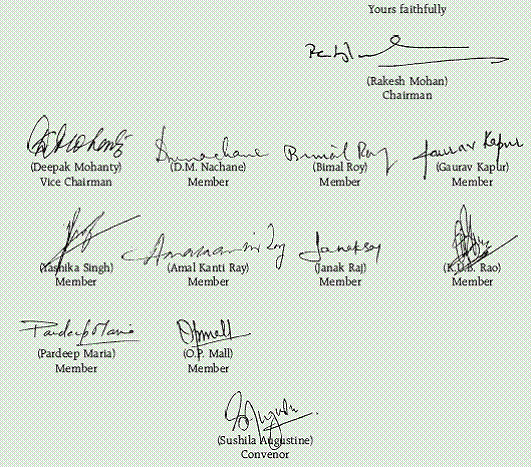 Yours faithfully
(Rakesh Mohan)
Chairman
(Deepak Mohanty) (D.M. Nachane) (Bimal Roy) (Gaurav Kapur)
Vice Chairman Member Member Member
(Yashika Singh) (Amal Kanti Ray) (Janak Raj) (K.U.B. Rao)
Member Member Member Member
(Pardeep Maria) (O.P. Mall)
Member Member
(Sushila Augustine)
Convenor